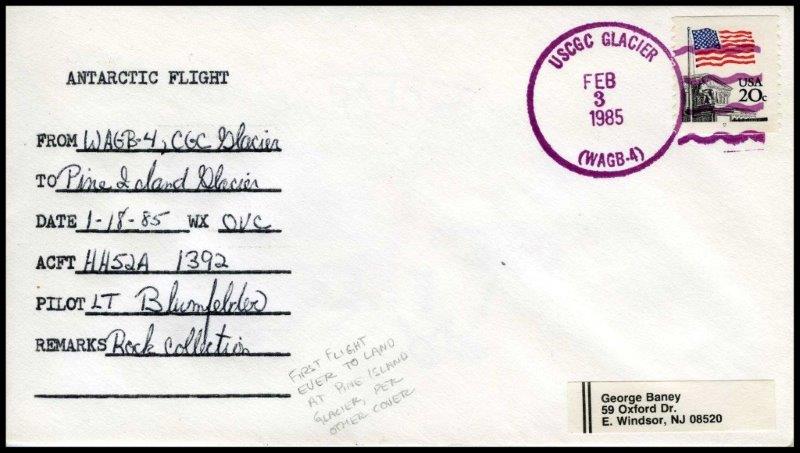 ANTARCTIC FLIGHT
FROM WAGB-4, CGC Glacier
TO Pine Island Glacier
DATE 1-18-85 WX OVC
ACFT HH52A 1392
PILOT LT Blumfelder
REMARKS Rock Collection
FIRST FLIGHT
EVER TO LAND
AT PINE ISLAND
GLACIER, PER
OTHER COVER
USCGC GLACIER
FEB
3
1985
(WAGB-4)
USA
20c
George Baney
59 Oxford Dr.
E. Windsor, NJ 08520